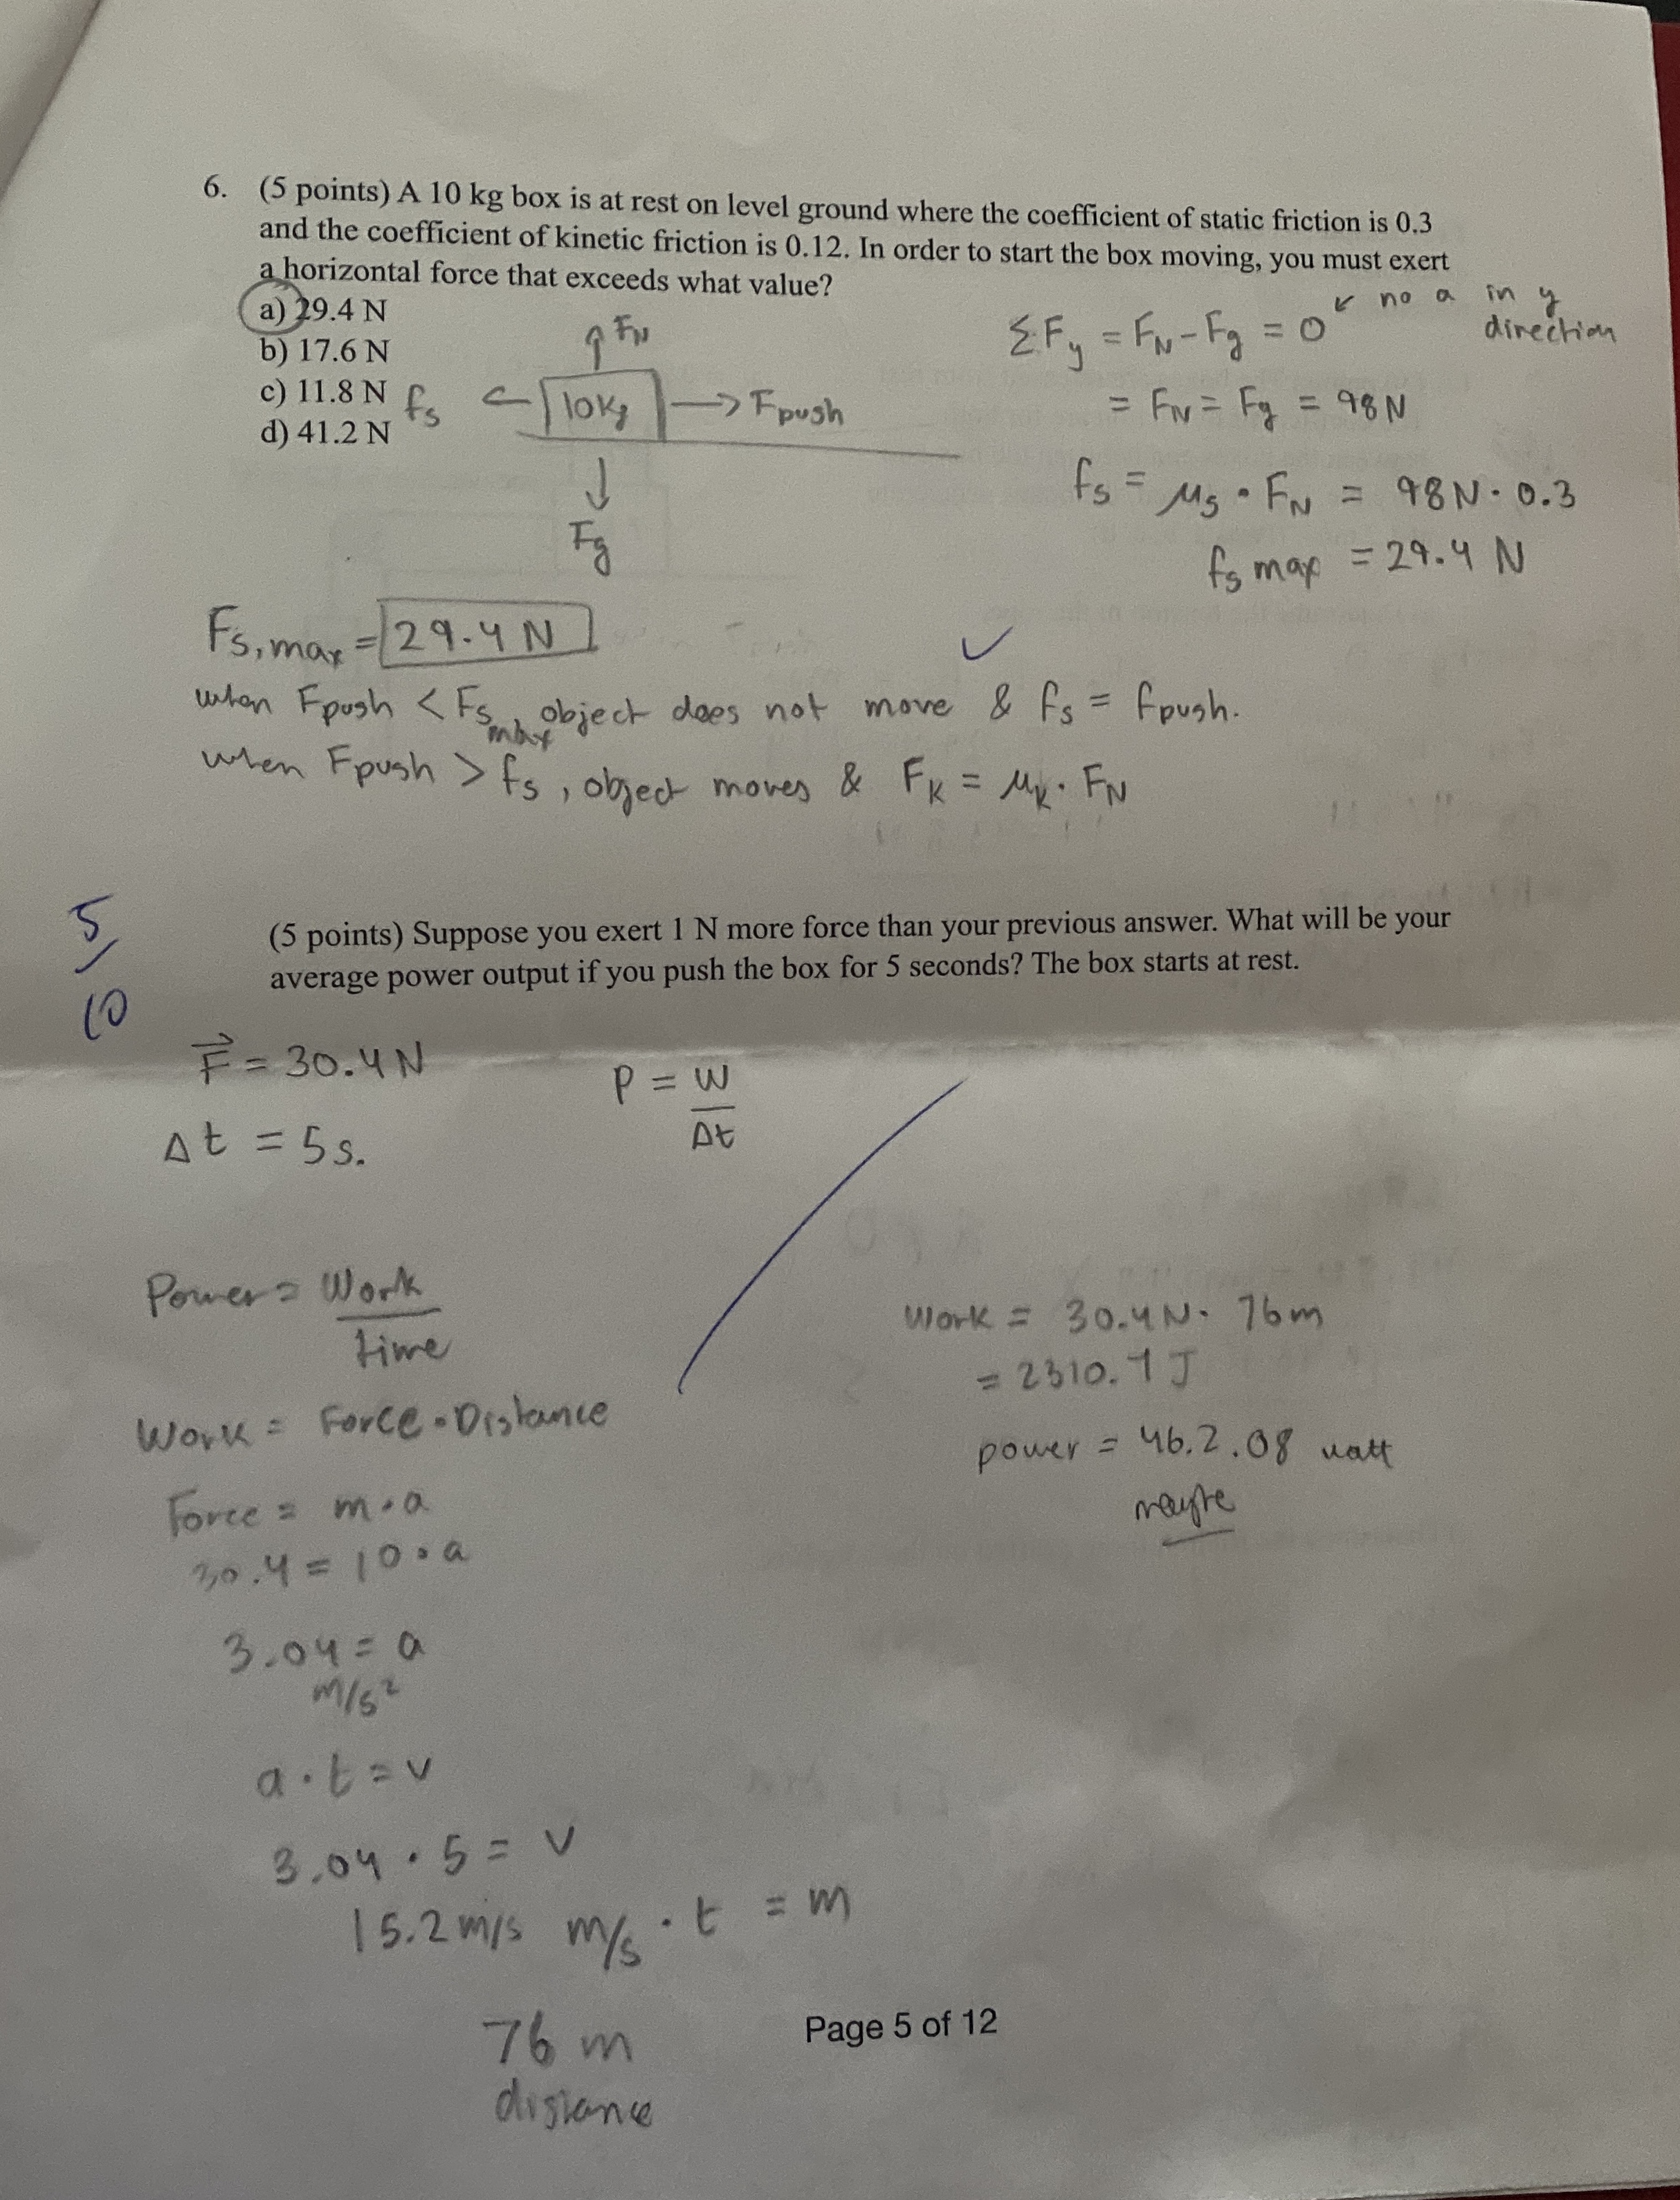 6. (5 points) A 10 kg box is at rest on level ground where the coefficient of static friction is 0.3
and the coefficient of kinetic friction is 0.12. In order to start the box moving, you must exert
a horizontal force that exceeds what value?
a) 29.4 N
b) 17.6 N
c) 11.8 N
d) 41.2 N
FN
fs
10kg
Fpush
Fg
ΣFy = FN - Fg = 0 ↙ no a in y
direction
= FN = Fg = 98N
fs = μs • FN = 98N • 0.3
fs max = 29.4 N
Fs, max = 29.4 N
✓
when Fpush < Fs max, object does not move & fs = fpush.
when Fpush > fs, object moves & FK = μK • FN
5/10
(5 points) Suppose you exert 1 N more force than your previous answer. What will be your
average power output if you push the box for 5 seconds? The box starts at rest.
F⃗ = 30.4 N
Δt = 5s.
P = W/Δt
Power = Work/time
Work = Force • Distance
Force = m • a
30.4 = 10 • a
3.04 = a
m/s²
a • t = v
3.04 • 5 = v
15.2 m/s m/s • t = m
76 m
distance
Work = 30.4 N • 76m
= 2310.7 J
power = 46.2.08 watt
maybe
Page 5 of 12